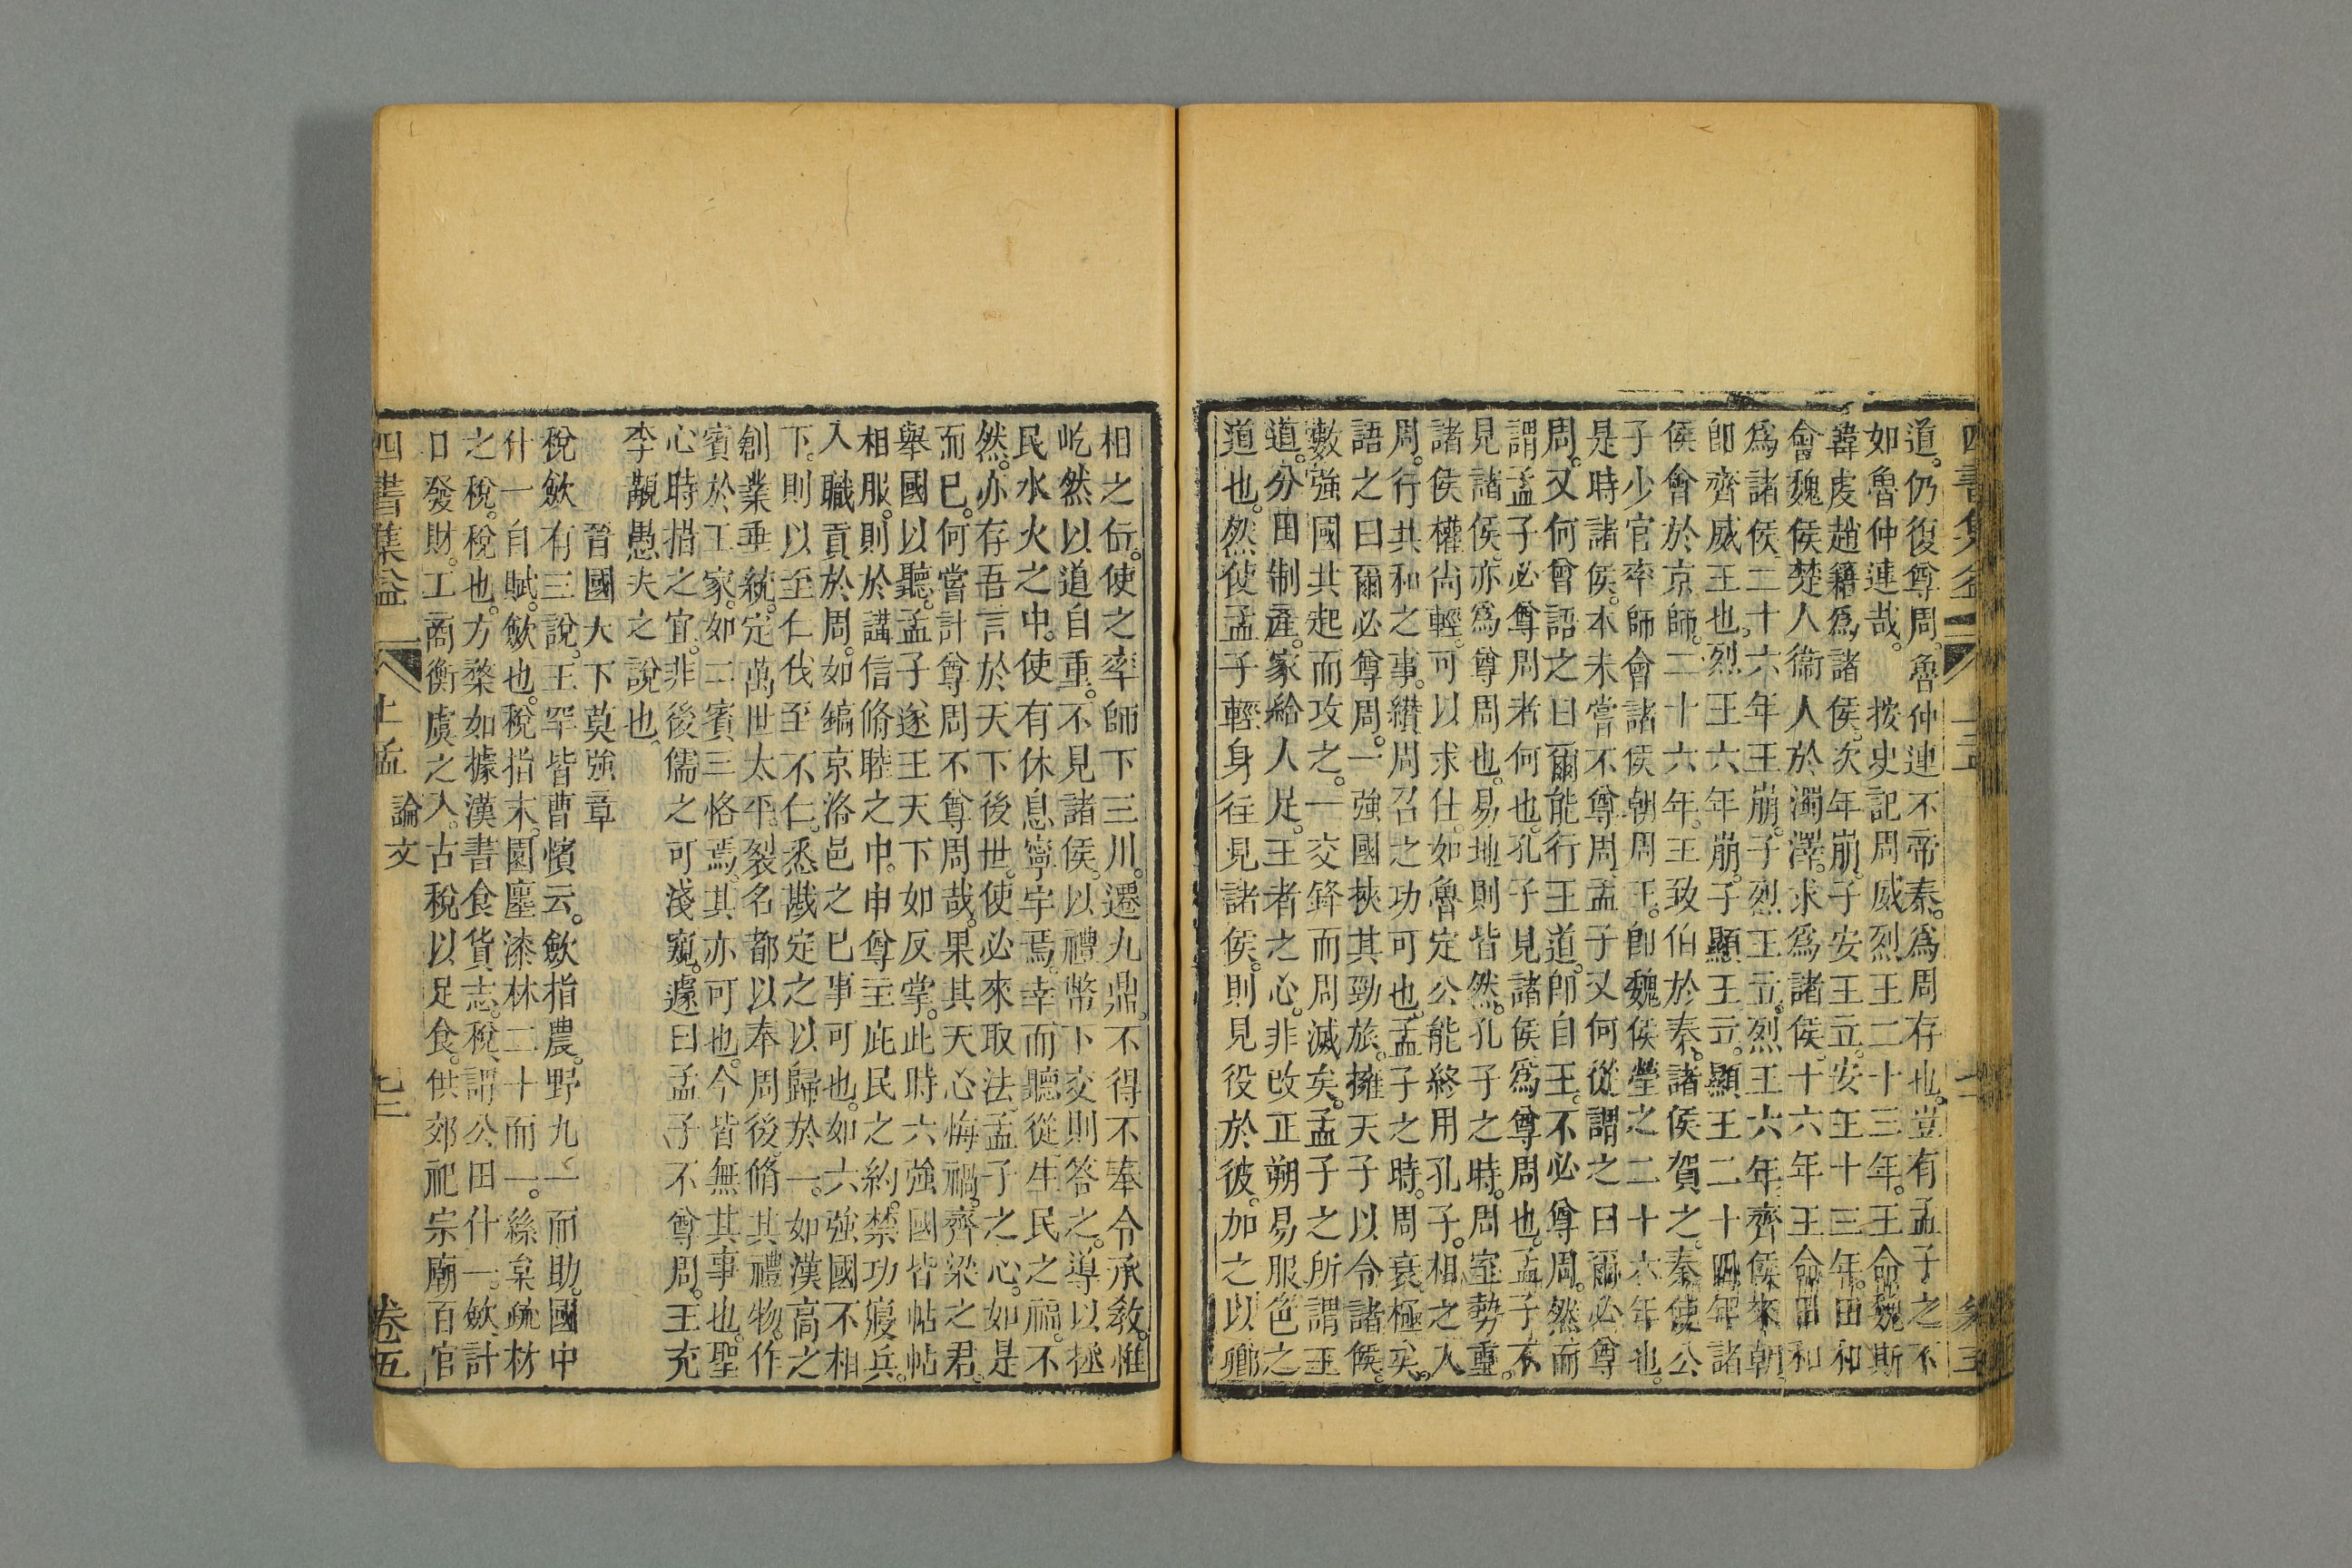 道。仍復尊周。魯仲連不帝秦。爲周存也。豈有孟子之不
如魯仲連哉。　按史記周威烈王二十三年。王命魏斯
韓虔趙籍爲諸侯。次年崩。子安王立。安王十三年。田和
會魏侯楚人衞人於濁澤。求爲諸侯。十六年王命田和
爲諸侯。二十六年王崩。子烈王立。烈王六年齊侯來朝。
卽齊威王也。烈王六年崩。子顯王立。顯王二十四年諸
侯會於京師。二十六年。王致伯於秦。諸侯賀之。秦使公
子少官率師會諸侯朝周王。卽魏侯瑩之二十六年也。
是時諸侯。本未嘗不尊周。孟子又何從謂之曰爾必尊
周。又何曾語之曰爾能行王道。卽自王。不必尊周。然而
謂孟子必尊周者何也。孔子見諸侯爲尊周也。孟子不
見諸侯。亦爲尊周也。易地則皆然。孔子之時。周室勢重。
諸侯權尚輕。可以求仕。如魯定公能終用孔子。相之入
周。行共和之事。纘周召之功可也。孟子之時。周衰極矣。
語之曰爾必尊周。一強國挾其勁旅。擁天子以令諸侯。
數強國共起而攻之。一交鋒而周滅矣。孟子之所謂王
道。分田制產。家給人足。王者之心。非改正朔易服色之
道也。然使孟子輕身往見諸侯。則見役於彼。加之以卿
相之位。使之率師下三川。遷九鼎。不得不奉令承敎。惟
屹然以道自重。不見諸侯。以禮幣下交則答之。導以拯
民水火之中。使有休息寧宇焉。幸而聽從生民之福。不
然。亦存吾言於天下後世。使必來取法。孟子之心。如是
而已。何嘗計尊周不尊周哉。果其天心悔禍。齊梁之君。
舉國以聽。孟子遂王天下如反掌。此時六強國皆帖帖
相服。則於講信脩睦之中。申尊主庇民之約。禁功寢兵。
入職貢於周。如鎬京洛邑之已事可也。如六強國不相
下。則以至仁伐至不仁。悉戡定之以歸於一。如漢高之
創業垂統。定萬世太平。裂名都以奉周後。脩其禮物。作
賓於王家。如二賓三恪焉。其亦可也。今皆無其事也。聖
心時措之宜。非後儒之可淺窺。遽曰孟子不尊周。王充
李覯愚夫之說也。
晉國天下莫強章
稅斂有三說。王罕皆曹懫云。斂指農。野九一而助。國中
什一自賦。斂也。稅指末。園廛漆林二十而一。絲枲疏材
之稅。稅也。方檠如據漢書食貨志。稅、謂公田什一。斂、計
口發財。工商衡虞之入。古稅以足食。供郊祀宗廟百官
四書集益　上孟　論文　七三　卷五